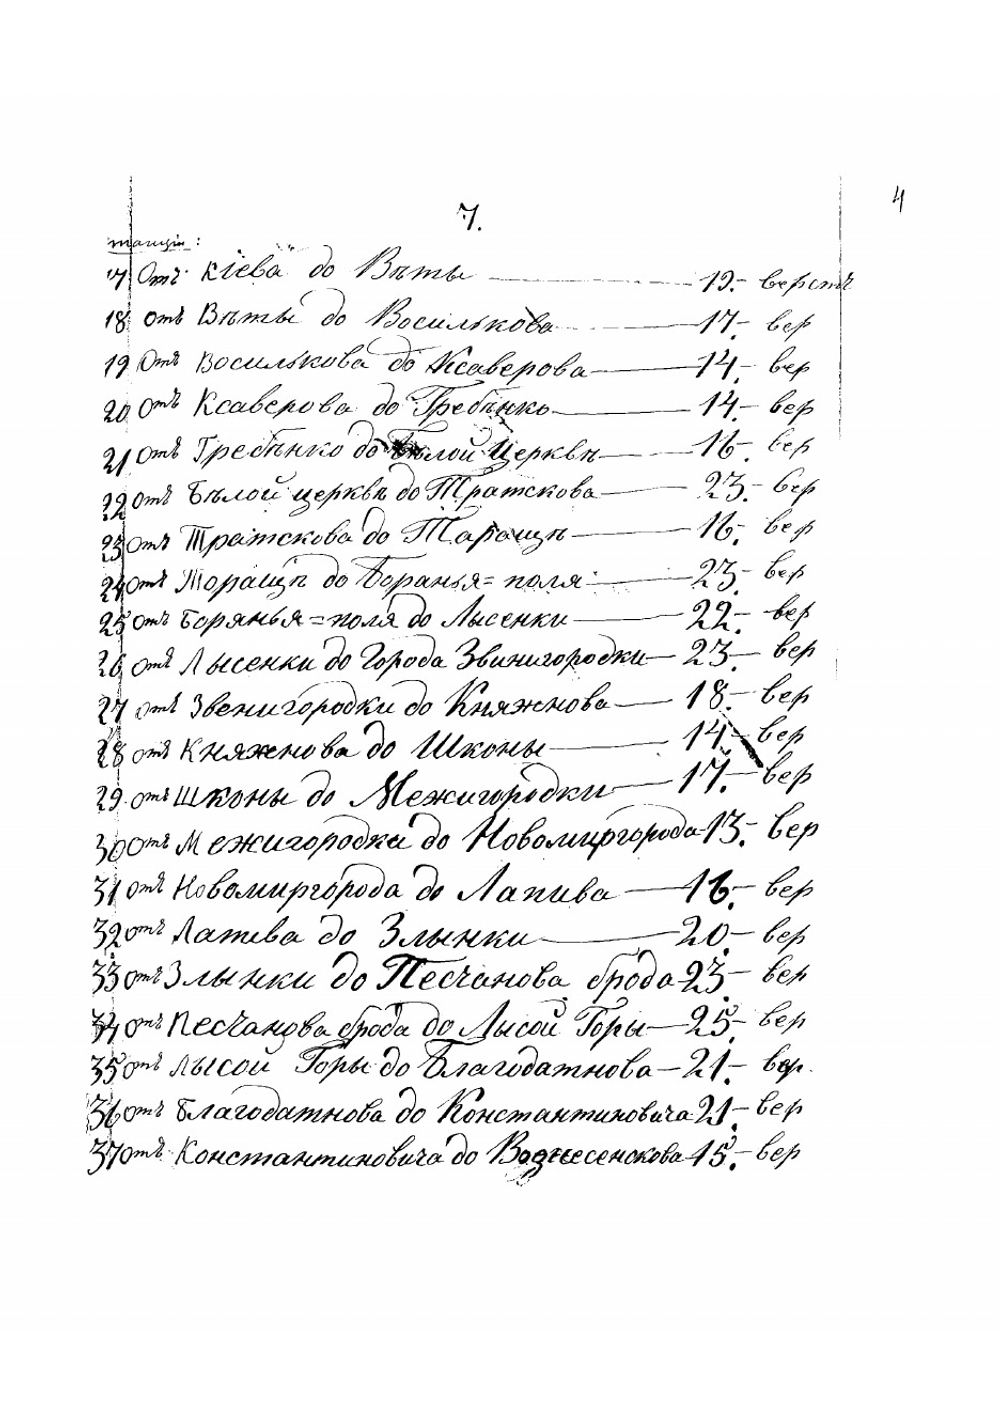 4
7.
станцiи:
17 Отъ Кiева до Вѣты 19. верстъ
18 отъ Вѣты до Восилькова 17. вер
19 Отъ Восилькова до Ксаверова 14. вер
20 Отъ Ксаверова до Гребѣнко 14. вер
21 отъ Гребѣнко до Бѣлой Церквѣ 16. вер
22 отъ Бѣлой церквѣ до Тражскова 23. вер
23 отъ Тражскова до Таращѣ 16. вер
24 отъ Торащѣ до Боранья=поля 23. вер
25 отъ Борянья=поля до Лысенки 22. вер
26 отъ Лысенки до Города Звинигородки 23. вер
27 отъ Звенигородки до Княжнова 18. вер
28 отъ Княжнова до Шконы 14. вер
29. отъ Шконы до Межигородки 17. вер
30 отъ Межигородки до Новомиргорода 13. вер
31 отъ Новомиргорода до Лапива 16. вер
32 отъ Лапива до Злынки 20. вер
33 отъ Злынки до Песчанова брода 23. вер
34 отъ Песчанова брода до Лысой Горы 25. вер
35 отъ Лысой Горы до Благодатнова 21. вер.
36 отъ Благодатнова до Константиновича 21. вер
37 отъ Константиновича до Вознесенскова 15. вер